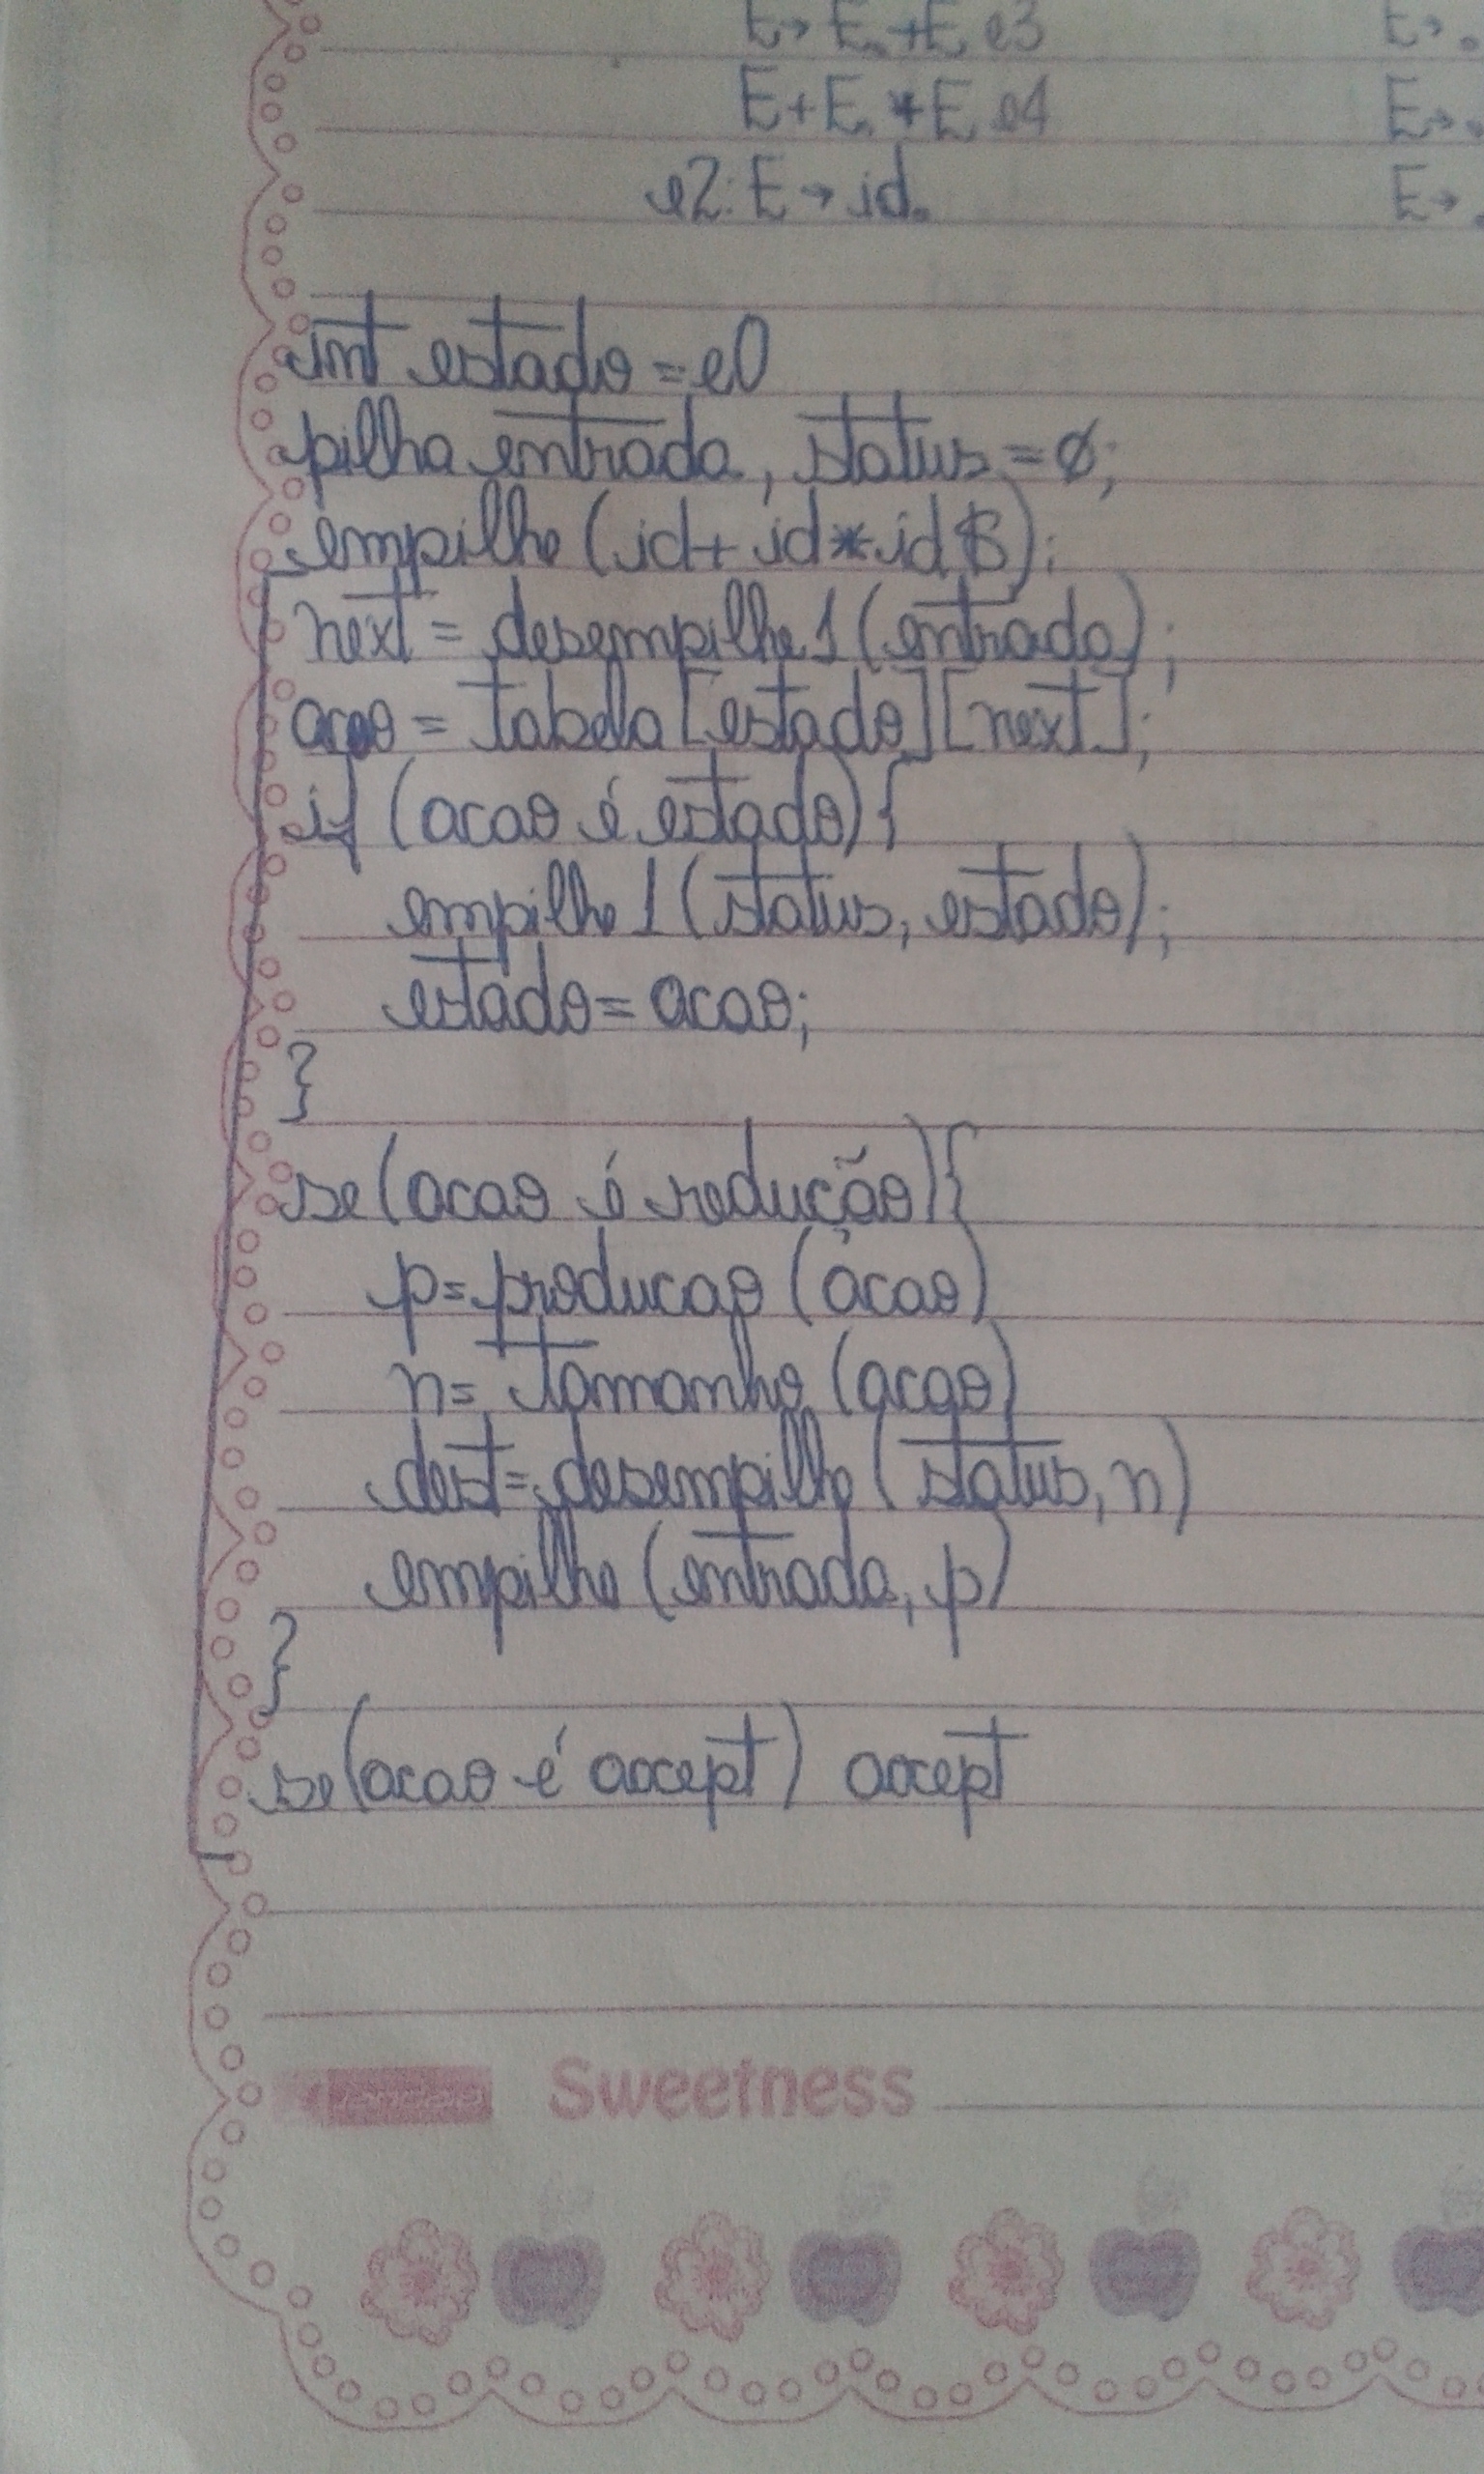 E→E.+E e3
E→.
E+E.*E e4
E→.
e2: E→id.
E→.
int estado = e0
pilha entrada, status = ø;
empilhe (id + id * id $);
next = desempilhe 1 (entrada);
acao = tabela [estado][next];
if (acao é estado) {
empilhe 1 (status, estado);
estado = acao;
}
se (acao é redução) {
p = producao (acao)
n = tamanho (acao)
dest = desempilhe (status, n)
empilhe (entrada, p)
}
se (acao é accept) accept
Sweetness